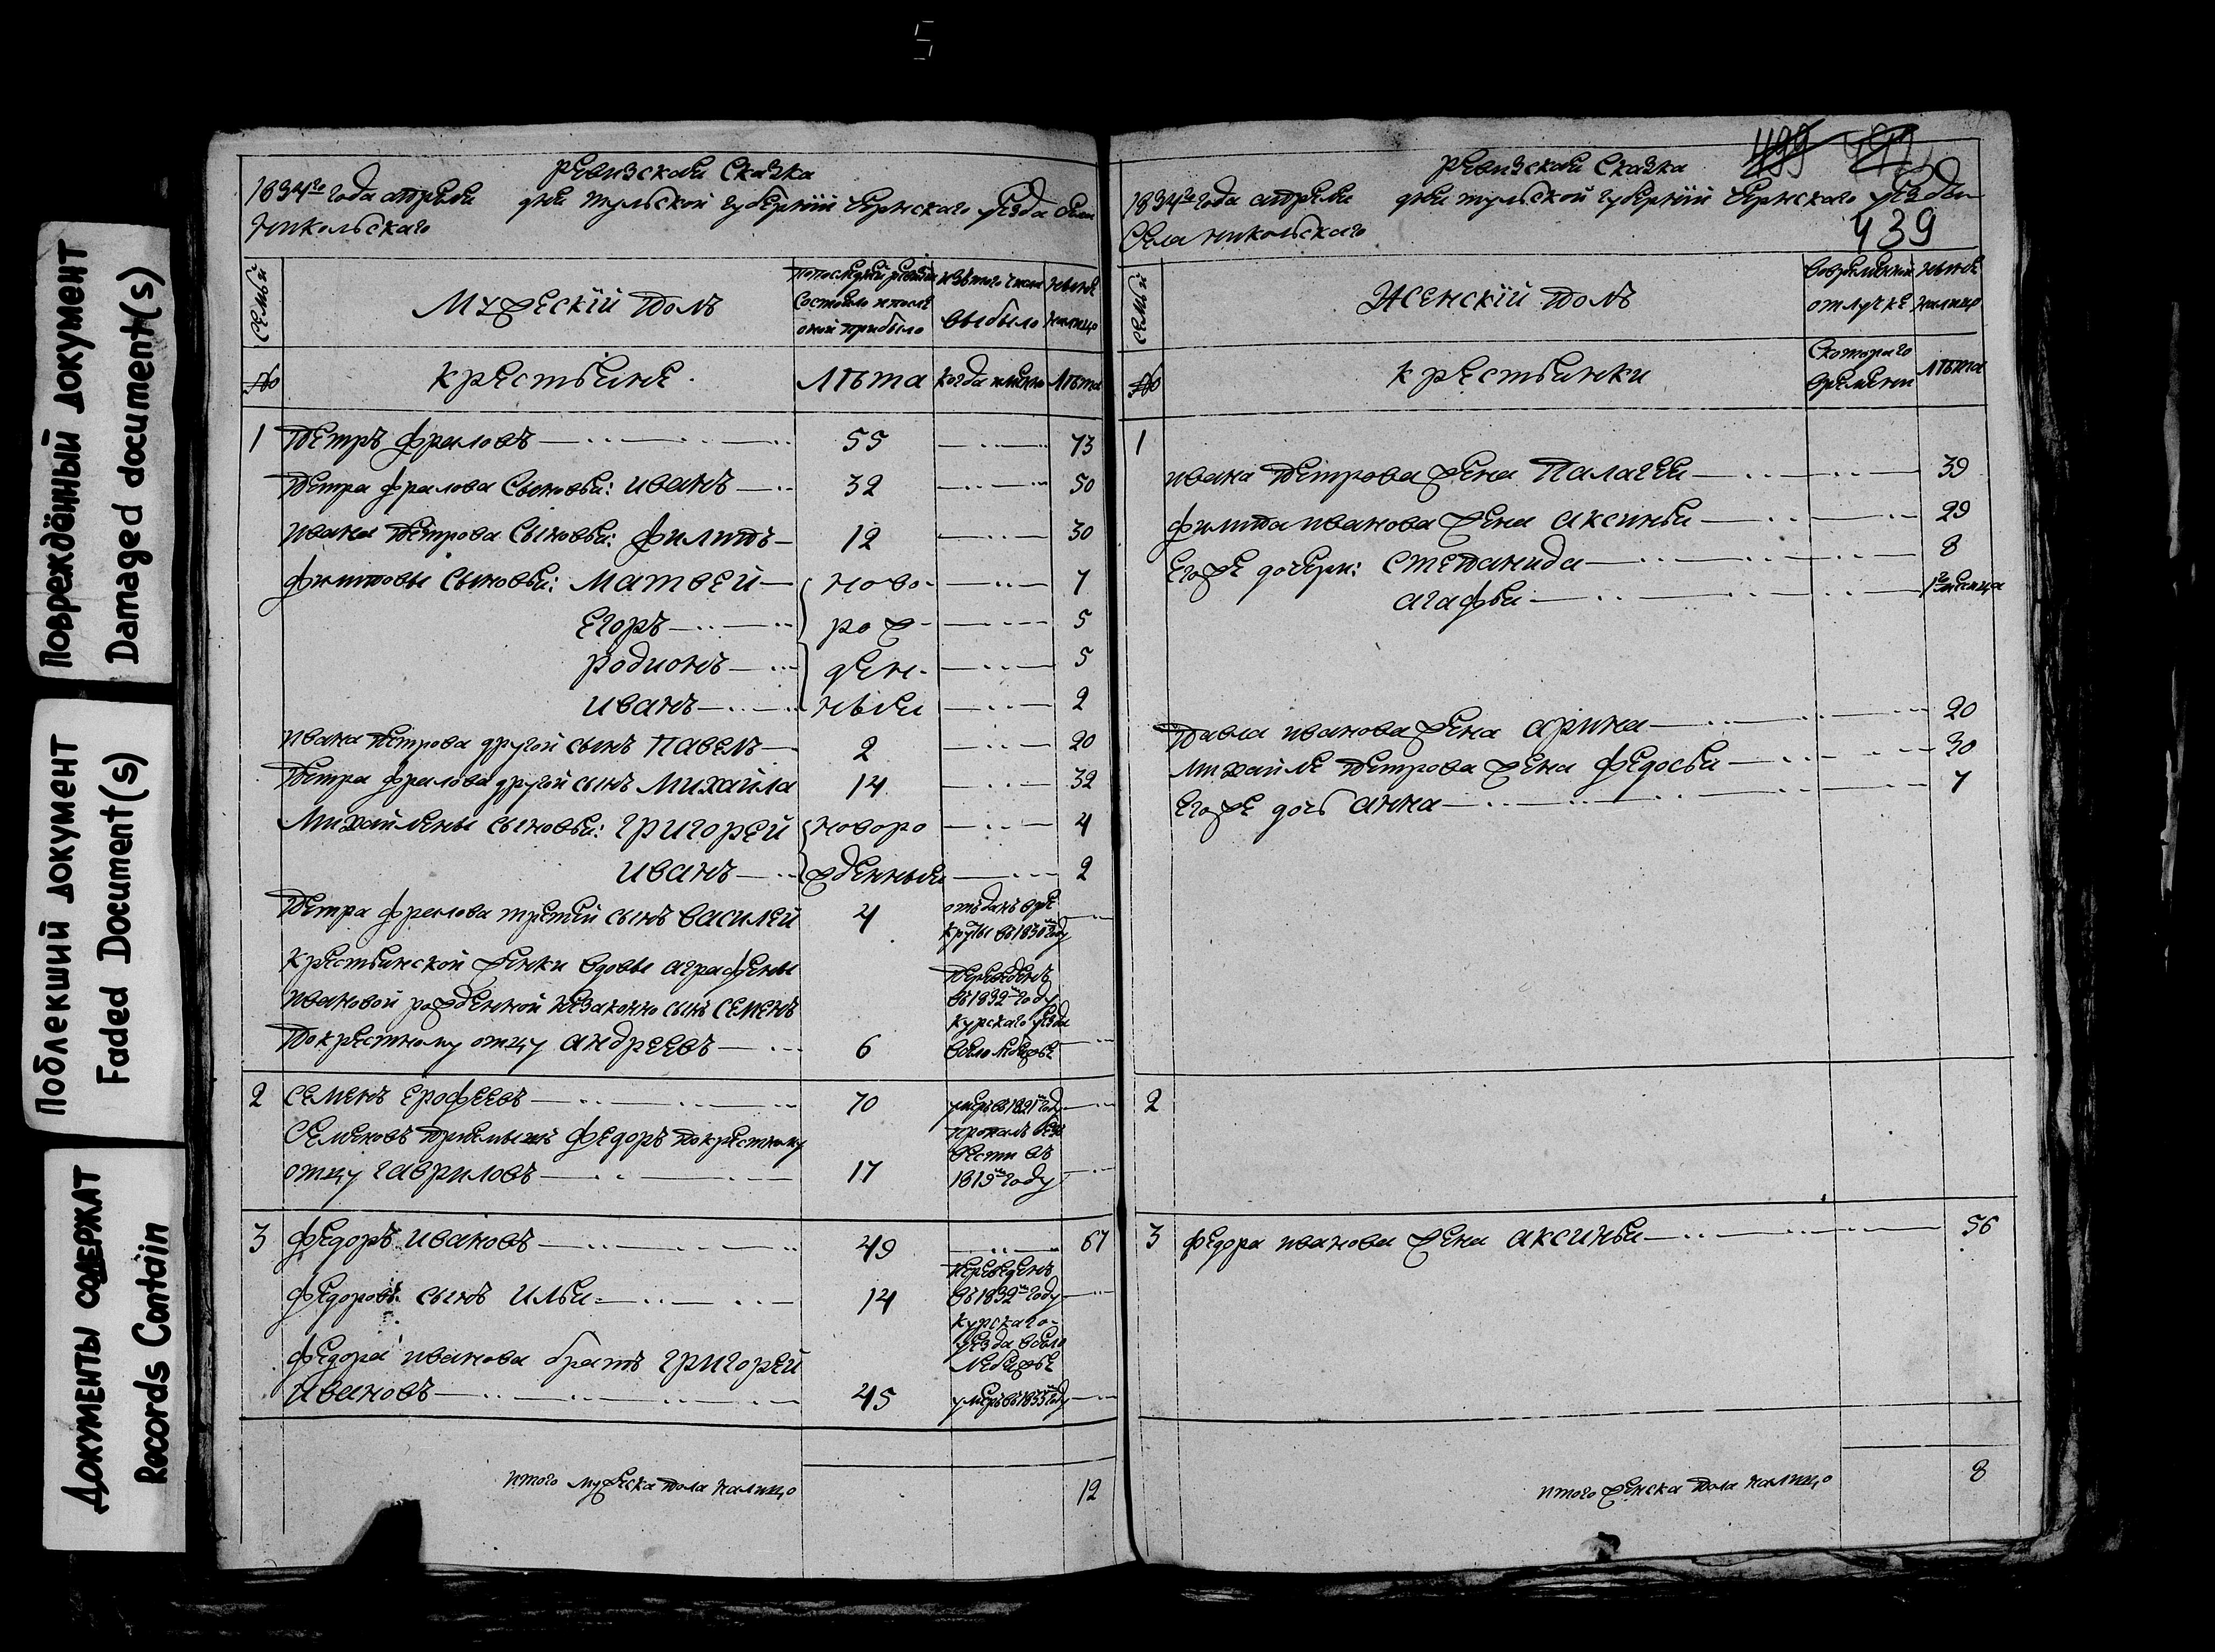 Повреждённый документ
Damaged document(s)
Поблекший документ
Faded Document(s)
Документы содержат
Records Contain
Ревизская Сказка
1834го года апреля дня тульской губернiи Чернскаго уезда села
Никольскаго
СЕМЬИ
Мужескiй полъ
По последней ревизiи состояло и после оной прибыло
Изъ того числа выбыло
Ныне налицо
№
Крестьяне.
Лѣта
Когда именно
Лѣта
1 Петръ Фроловъ 55 73
Петра Фролова Сыновья: Иванъ 32 50
Ивана Петрова Сыновья: Филипъ 12 30
Филиповы Сыновья: Матвей ново- 7
Егоръ рож- 5
Родионъ ден- 5
Иванъ ныя 2
Ивана Петрова другой сынъ Павелъ 2 20
Петра Фролова другой сынъ Михайла 14 32
Михайлины сыновья: Григорей новоро 4
Иванъ жденныя 2
Петра Фролова третiй сынъ Василей 4 отъданъ вре
круты въ 1830м году
Крестьянской женки вдовы Аграфены
Ивановой рожденной незаконно сынъ Семенъ
По крестному отцу Андреевъ 6
переведенъ
въ 1832м году
Курскаго уезда
2 Семенъ Ерофеевъ 70 умеръ въ 1821м году
Семеновъ приемышъ Федоръ по крестному
отцу Гавриловъ 17
пропалъ безъ
вести въ
1819м году
3 Федоръ Ивановъ 49 67
Федоровъ сынъ Илья 14
переведенъ
въ 1832м году
Курскаго
уезда
Федора Иванова братъ Григорей
Ивановъ 45 умеръ въ 1833м году
Итого мужеска пола налицо 12
Ревизская Сказка
499
1834го года апреля дня тульской губернiи Чернскаго уезда
Села Никольскаго
439
СЕМЬИ
Женскiй полъ
Во временной отлучке
Ныне налицо
№
Крестьянки
С котораго времени
Лѣта
1
Ивана Петрова жена Палагея 39
Филипа Иванова жена Аксинья 29
Егоже дочери: Степанида 8
Агафья 1го месяца
Павла Иванова жена Арина 20
Михайле Петрова жена Федосья 30
Егоже дочь Анна 7
2
3 Федора Иванова жена Аксинья 56
Итого женска пола налицо 8